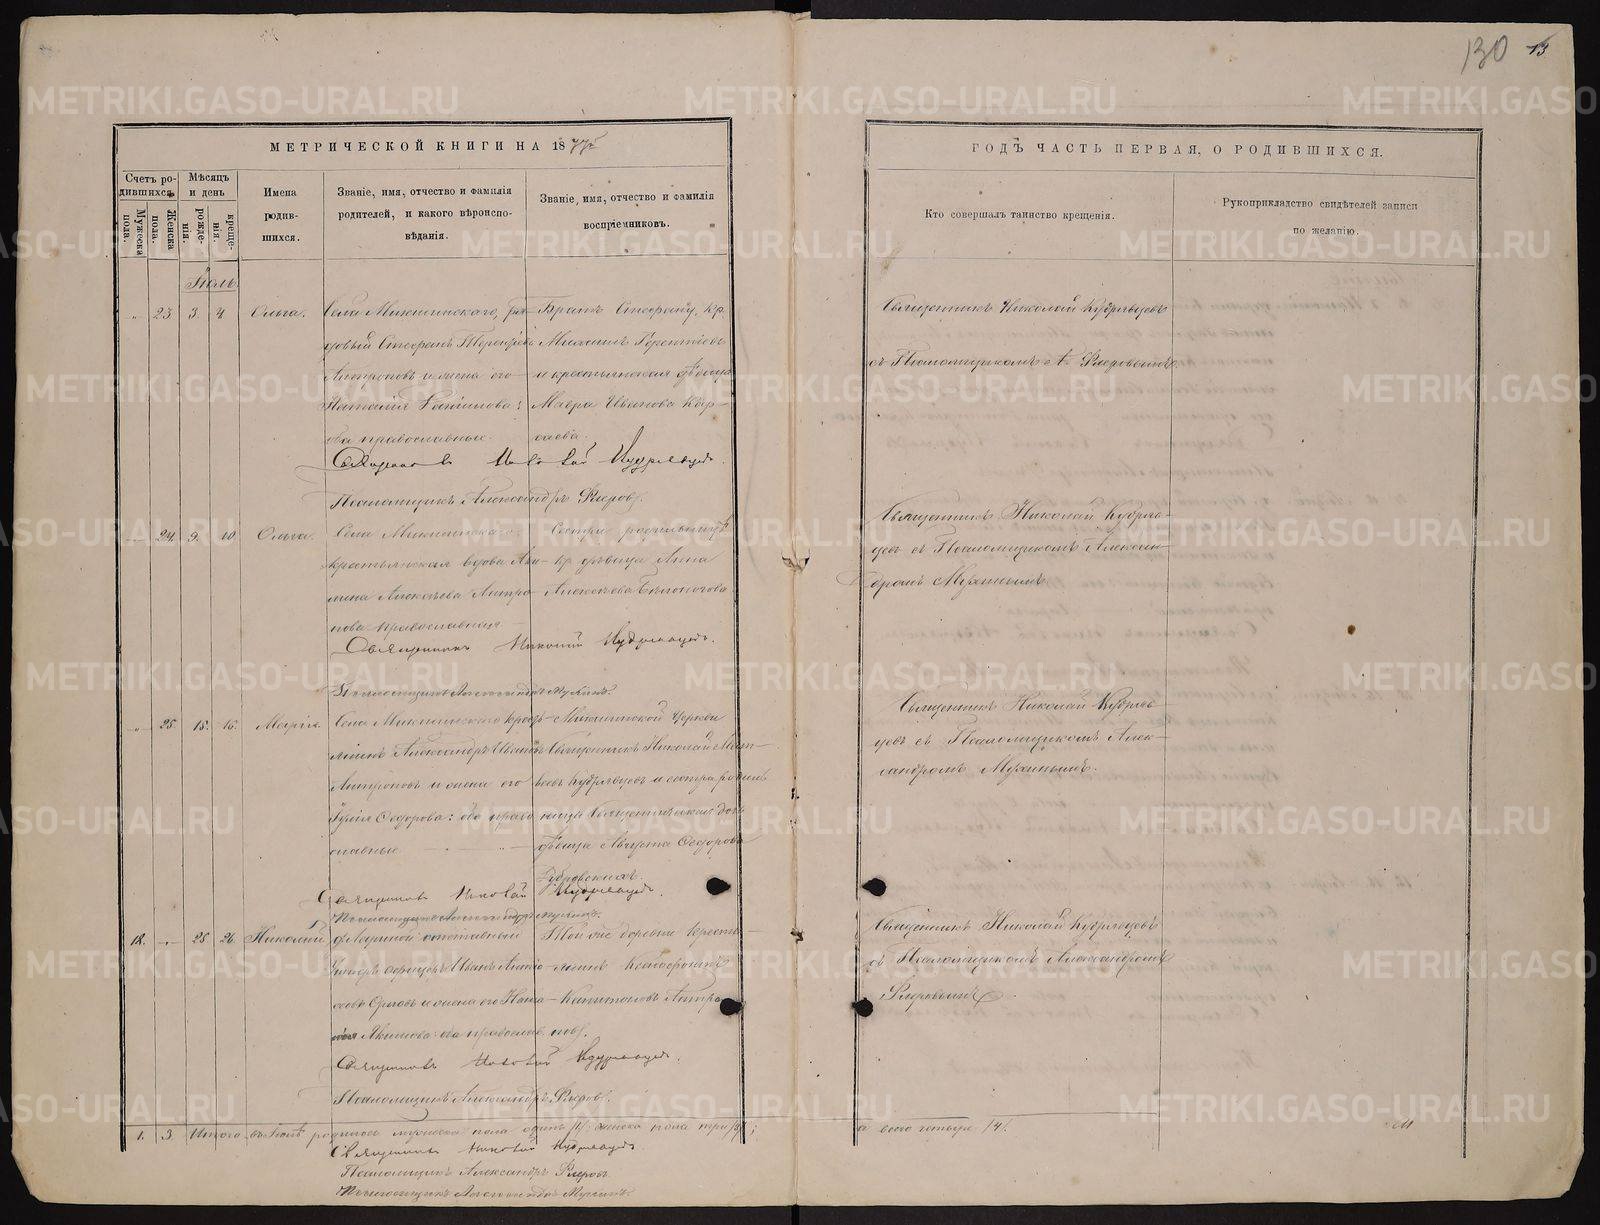 130 13
МЕТРИЧЕСКОЙ КНИГИ НА 1877й
ГОДЪ ЧАСТЬ ПЕРВАЯ, О РОДИВШИХСЯ.
Счетъ ро-
дившихся.
Мужеска пола.
Женска пола.
Мѣсяцъ
и день
рожде-
нія.
креще-
нія.
Имена
родив-
шихся.
Званіе, имя, отчество и фамилія
родителей, и какого вѣроиспо-
вѣданія.
Званіе, имя, отчество и фамилія
воспріемниковъ.
Кто совершалъ таинство крещенія.
Рукоприкладство свидѣтелей записи
по желанію.
Іюль.
23 3. 4. Ольга.
Села Микшинскаго,
Стефанъ Терентіевъ
Антроповъ и жена его
Наталія
ба православные.
Братъ Стефану, кр.
Терентіевъ
и крестьянская дѣвица
Мавра Иванова
Священникъ Николай Кудрявцевъ.
Псаломщикъ Александръ Флеровъ.
Священникъ Николай Кудрявцевъ
съ Псаломщикомъ А. Флеровымъ.
24. 9. 10. Ольга.
Села Микшинскаго
крестьянская вдова Аку-
лина Алексѣева Антро-
пова православная
Сестра родильницы
кр. дѣвица Анна
Алексѣева
Священникъ Николай Кудрявцевъ.
Псаломщикъ Александръ Мухинъ.
Священникъ Николай Кудряв-
цевъ съ Псаломщикомъ Алексан-
дромъ Мухинымъ
25. 15. 16. Марія.
Села Микшинскаго крест-
янинъ Александръ Ивановъ
Антроповъ и жена его
Юлія Ѳедорова: оба право-
славные
Микшинской церкви
Священникъ Николай Мат-
веевъ Кудрявцевъ и сестра родиль-
ницы Священническая дочь
дѣвица Августа Ѳедорова
Священникъ Николай Кудрявцевъ.
Псаломщикъ Александръ Мухинъ.
Священникъ Николай Кудряв-
цевъ съ Псаломщикомъ Алек-
сандромъ Мухинымъ.
12. 25. 26. Николай
отставный
Унтеръ офицеръ Иванъ
Орловъ и жена его Ната-
лія Акимова: оба православ.
Той же деревни кресть-
янинъ
Капитоновъ Антро-
повъ.
Священникъ Николай Кудрявцевъ.
Псаломщикъ Александръ Флеровъ.
Священникъ Николай Кудрявцевъ
съ Псаломщикомъ Александромъ
Флеровымъ.
1. 3. Итого въ Іюлѣ родилось мужеска пола одинъ /1/. женска пола три /3/;
а всего четыре /4/.
Священникъ Николай Кудрявцевъ.
Псаломщикъ Александръ Флеровъ.
Псаломщикъ Александръ Мухинъ.
METRIKI.GASO-URAL.RU